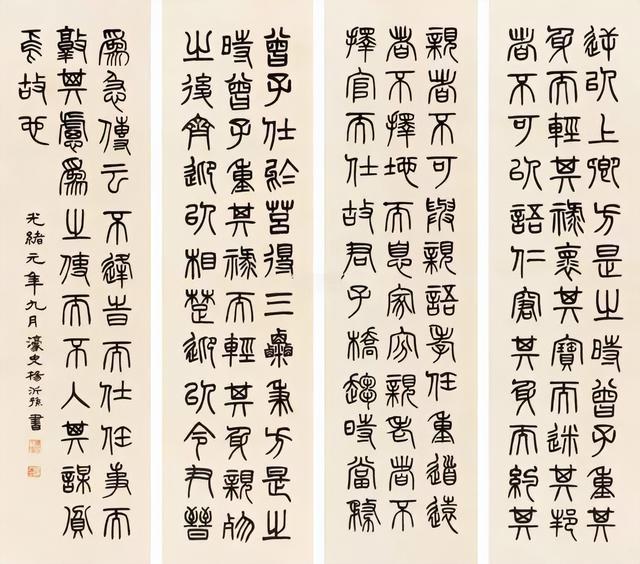 迎以上卿方是之時曾子重其
身而輕其祿懷其寶而迷其邦
者不可以語仁窘其身而約其
親者不可與親語孝任重道遠
者不擇地而息家貧親老者不
擇官而仕故君子橋趨時當務
曾子仕於莒得三粟秉方是之
時曾子重其祿而輕其身親歾
之後齊迎以相楚迎以令尹晉
為急傳云不逢時而仕任事而
敦其慮為之使而不入其謀貧
焉故也
光緒元年九月濠叟楊沂孫書